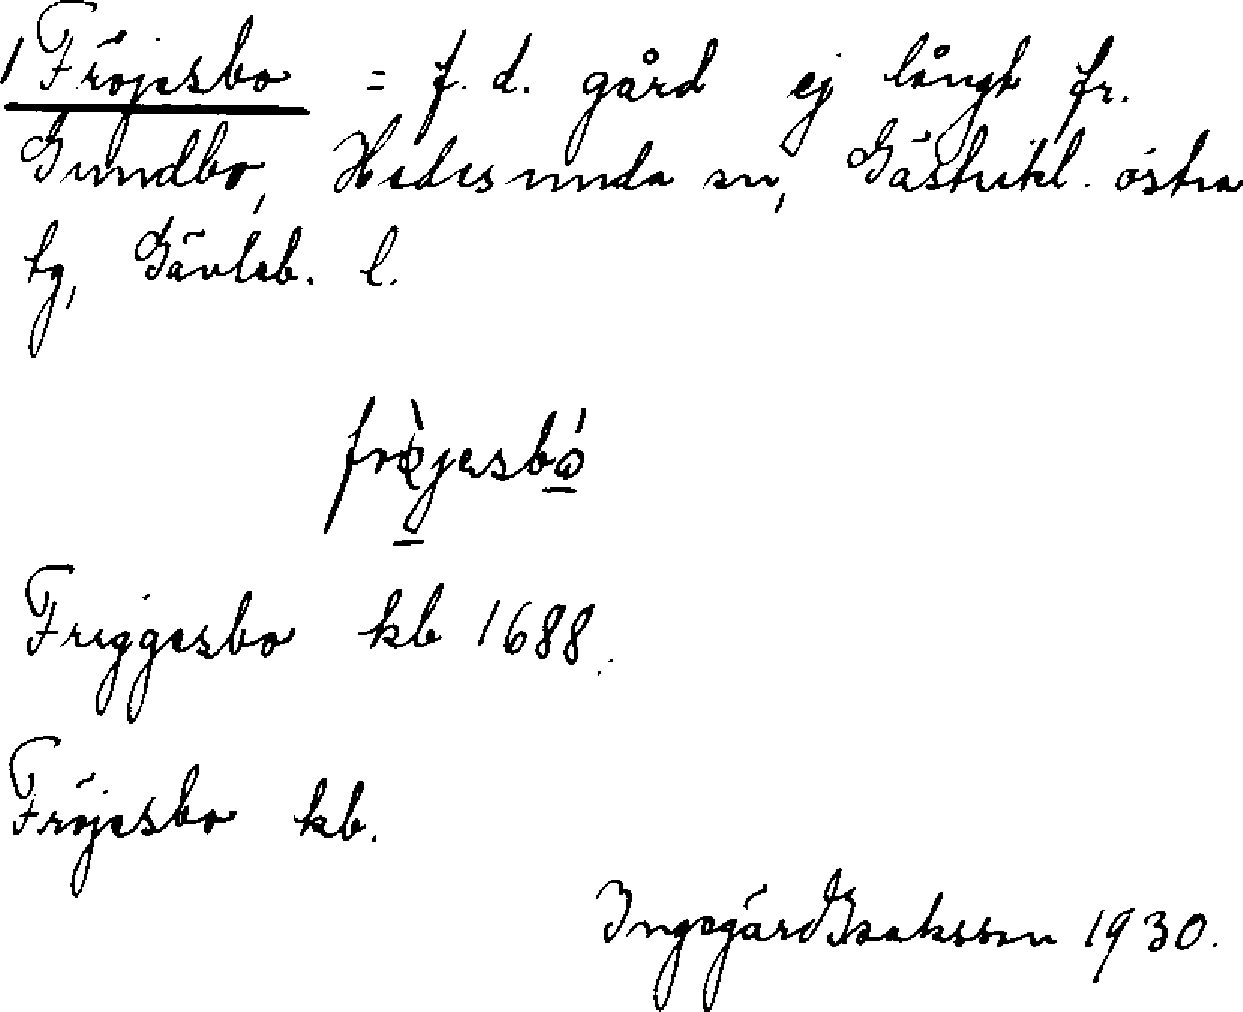 1 Fröjesbo = f. d. gård ej långt fr.
Gundbo, Hedesunda sn, Gästrikl. östra
tg, Gävleb. l.
frø̀jesbó
Friggesbo kb 1688.
Fröjesbo kb.
Ingegärd Isaksson 1930.